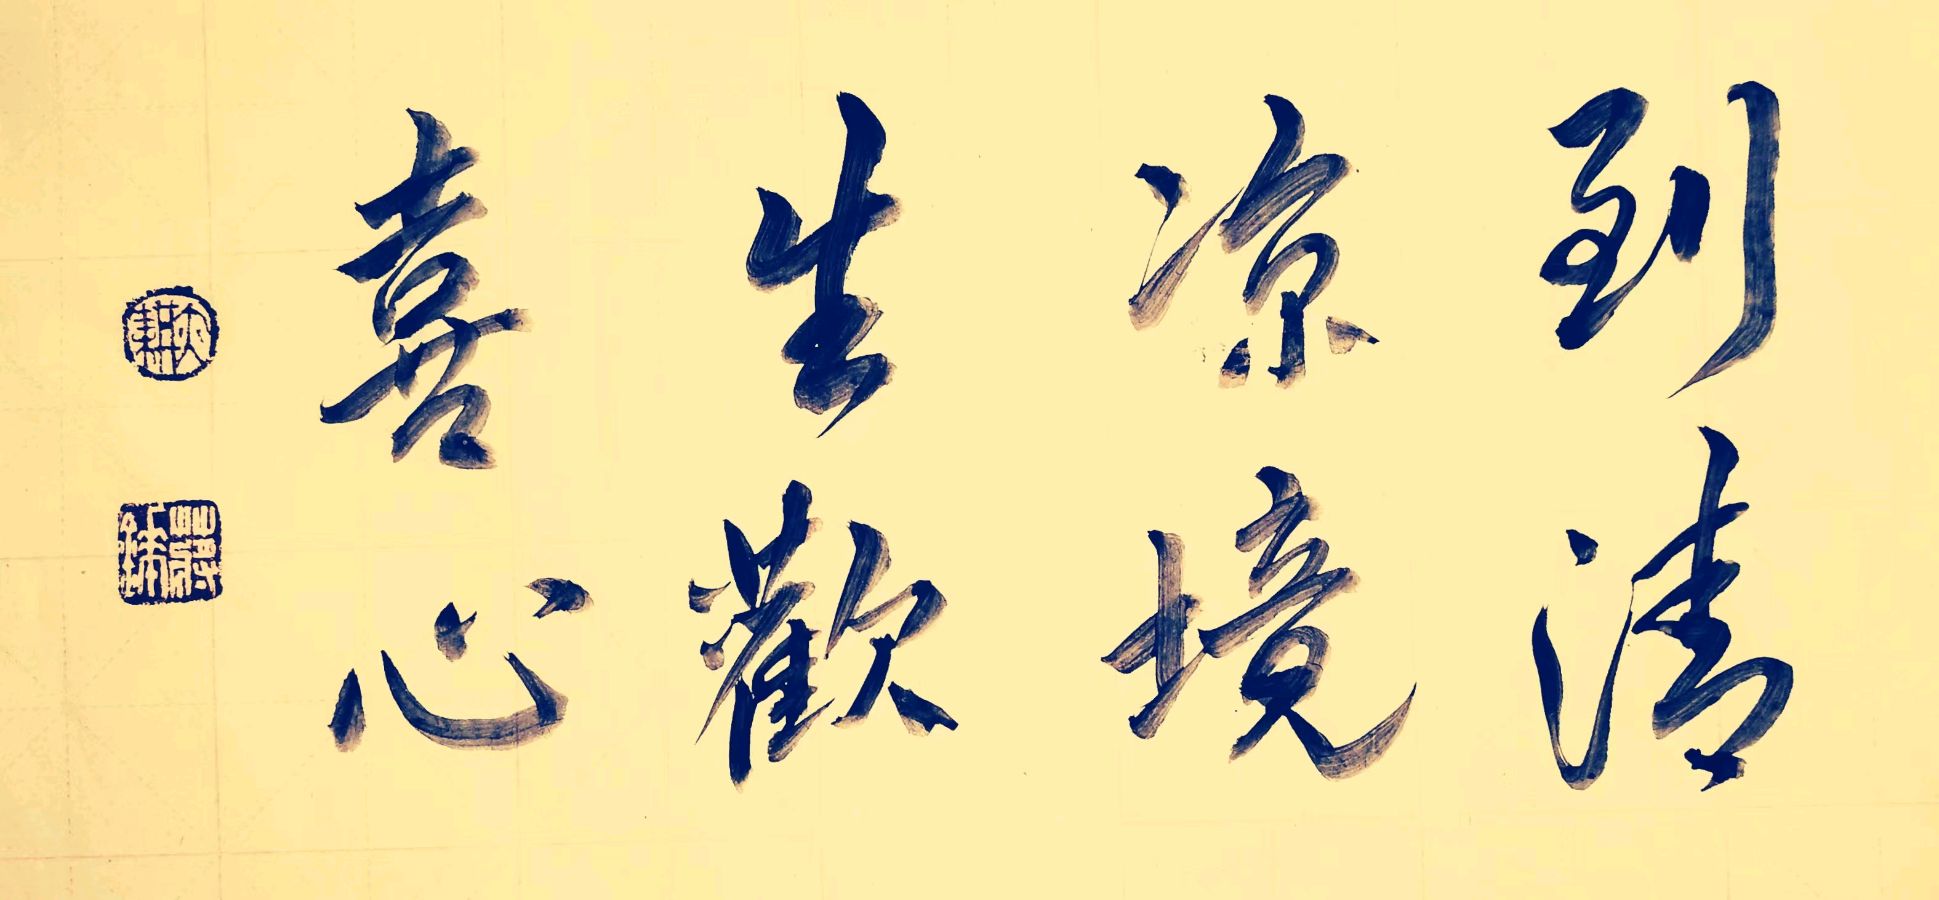 到清
凉境
生歡
喜心